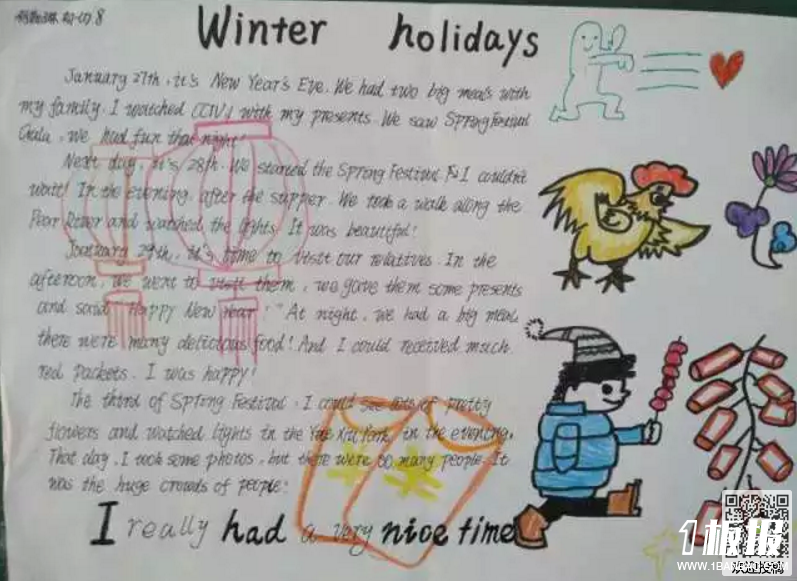 Winter holidays
January 27th, it's New Year's Eve. We had two big meals with
my family. I watched CCTV1 with my presents. We saw Spring Festival
Gala, we had fun that night!
Next day, it's 28th. We started the Spring Festival. I couldn't
wait! In the evening, after the supper. We took a walk along the
Pear River and watched the lights. It was beautiful!
January 29th, it's time to visit our relatives. In the
afternoon, we went to visit them, we gave them some presents
and said "Happy New Year!" At night, we had a big meal,
there were many delicious food! And I could received much
red packets. I was happy!
The third of Spring Festival, I could see lots of pretty
flowers and watched lights in the Xiu Park, in the evening.
That day, I took some photos, but there were so many people. It
was the huge crowds of people.
I really had a very nice time
1板报
WWW.1BANBAO.COM